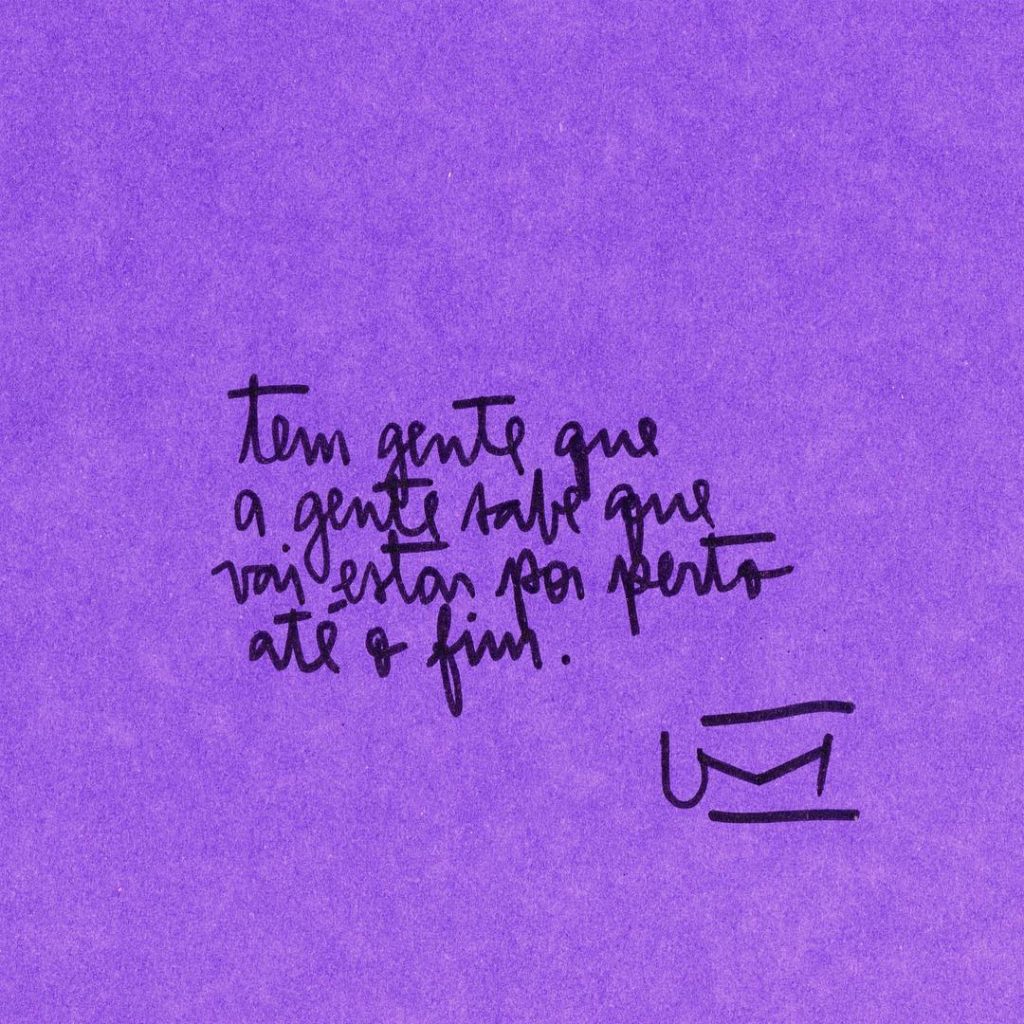 tem gente que
a gente sabe que
vai estar por perto
até o fim.
UM